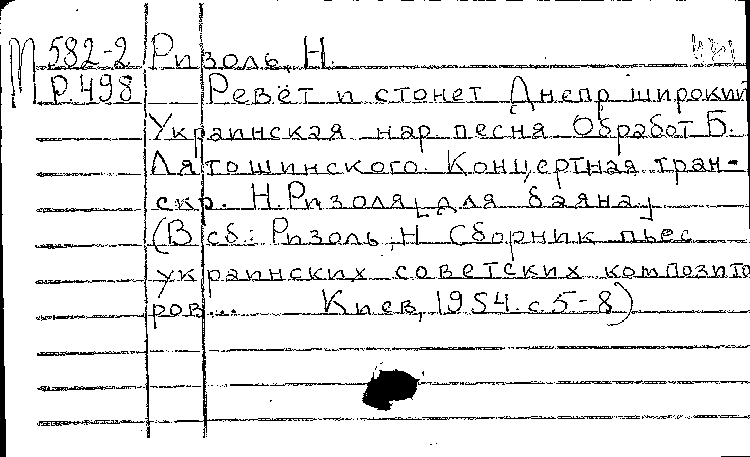 М 582-2 Ризоль, Н.
Р.498 Ревёт и стонет Днепр широкий
Украинская нар песня Обработ Б.
Лятошинского. Концертная тран-
скр. Н. Ризоля [для баяна]
(В сб: Ризоль, Н Сборник пьес
украинских советских композито
ров... Киев, 1954. с. 5-8)